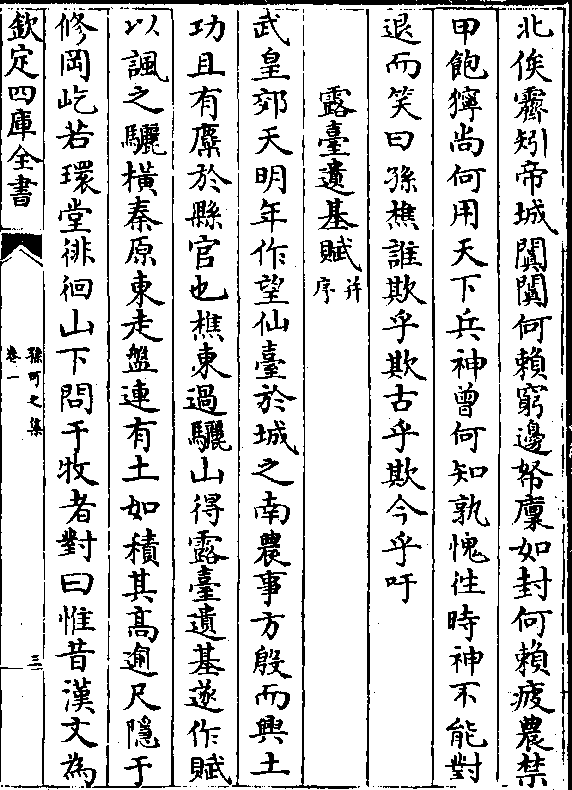 北俟霽矧帝城闐闐何賴窮邊帑廩如封何賴疲農禁
甲飽獰尚何用天下兵神曾何知孰愧徃時神不能對
退而笑曰孫樵誰欺乎欺古乎欺今乎吁
露臺遺基賦并序
武皇郊天明年作望仙臺於城之南農事方殷而興土
功且有糜於縣官也樵東過驪山得露臺遺基遂作賦
以諷之驪橫秦原東走盤連有土如積其高逾尺隱于
修岡屹若環堂徘徊山下問于牧者對曰惟昔漢文為
欽定四庫全書
孫可之集
卷一
三